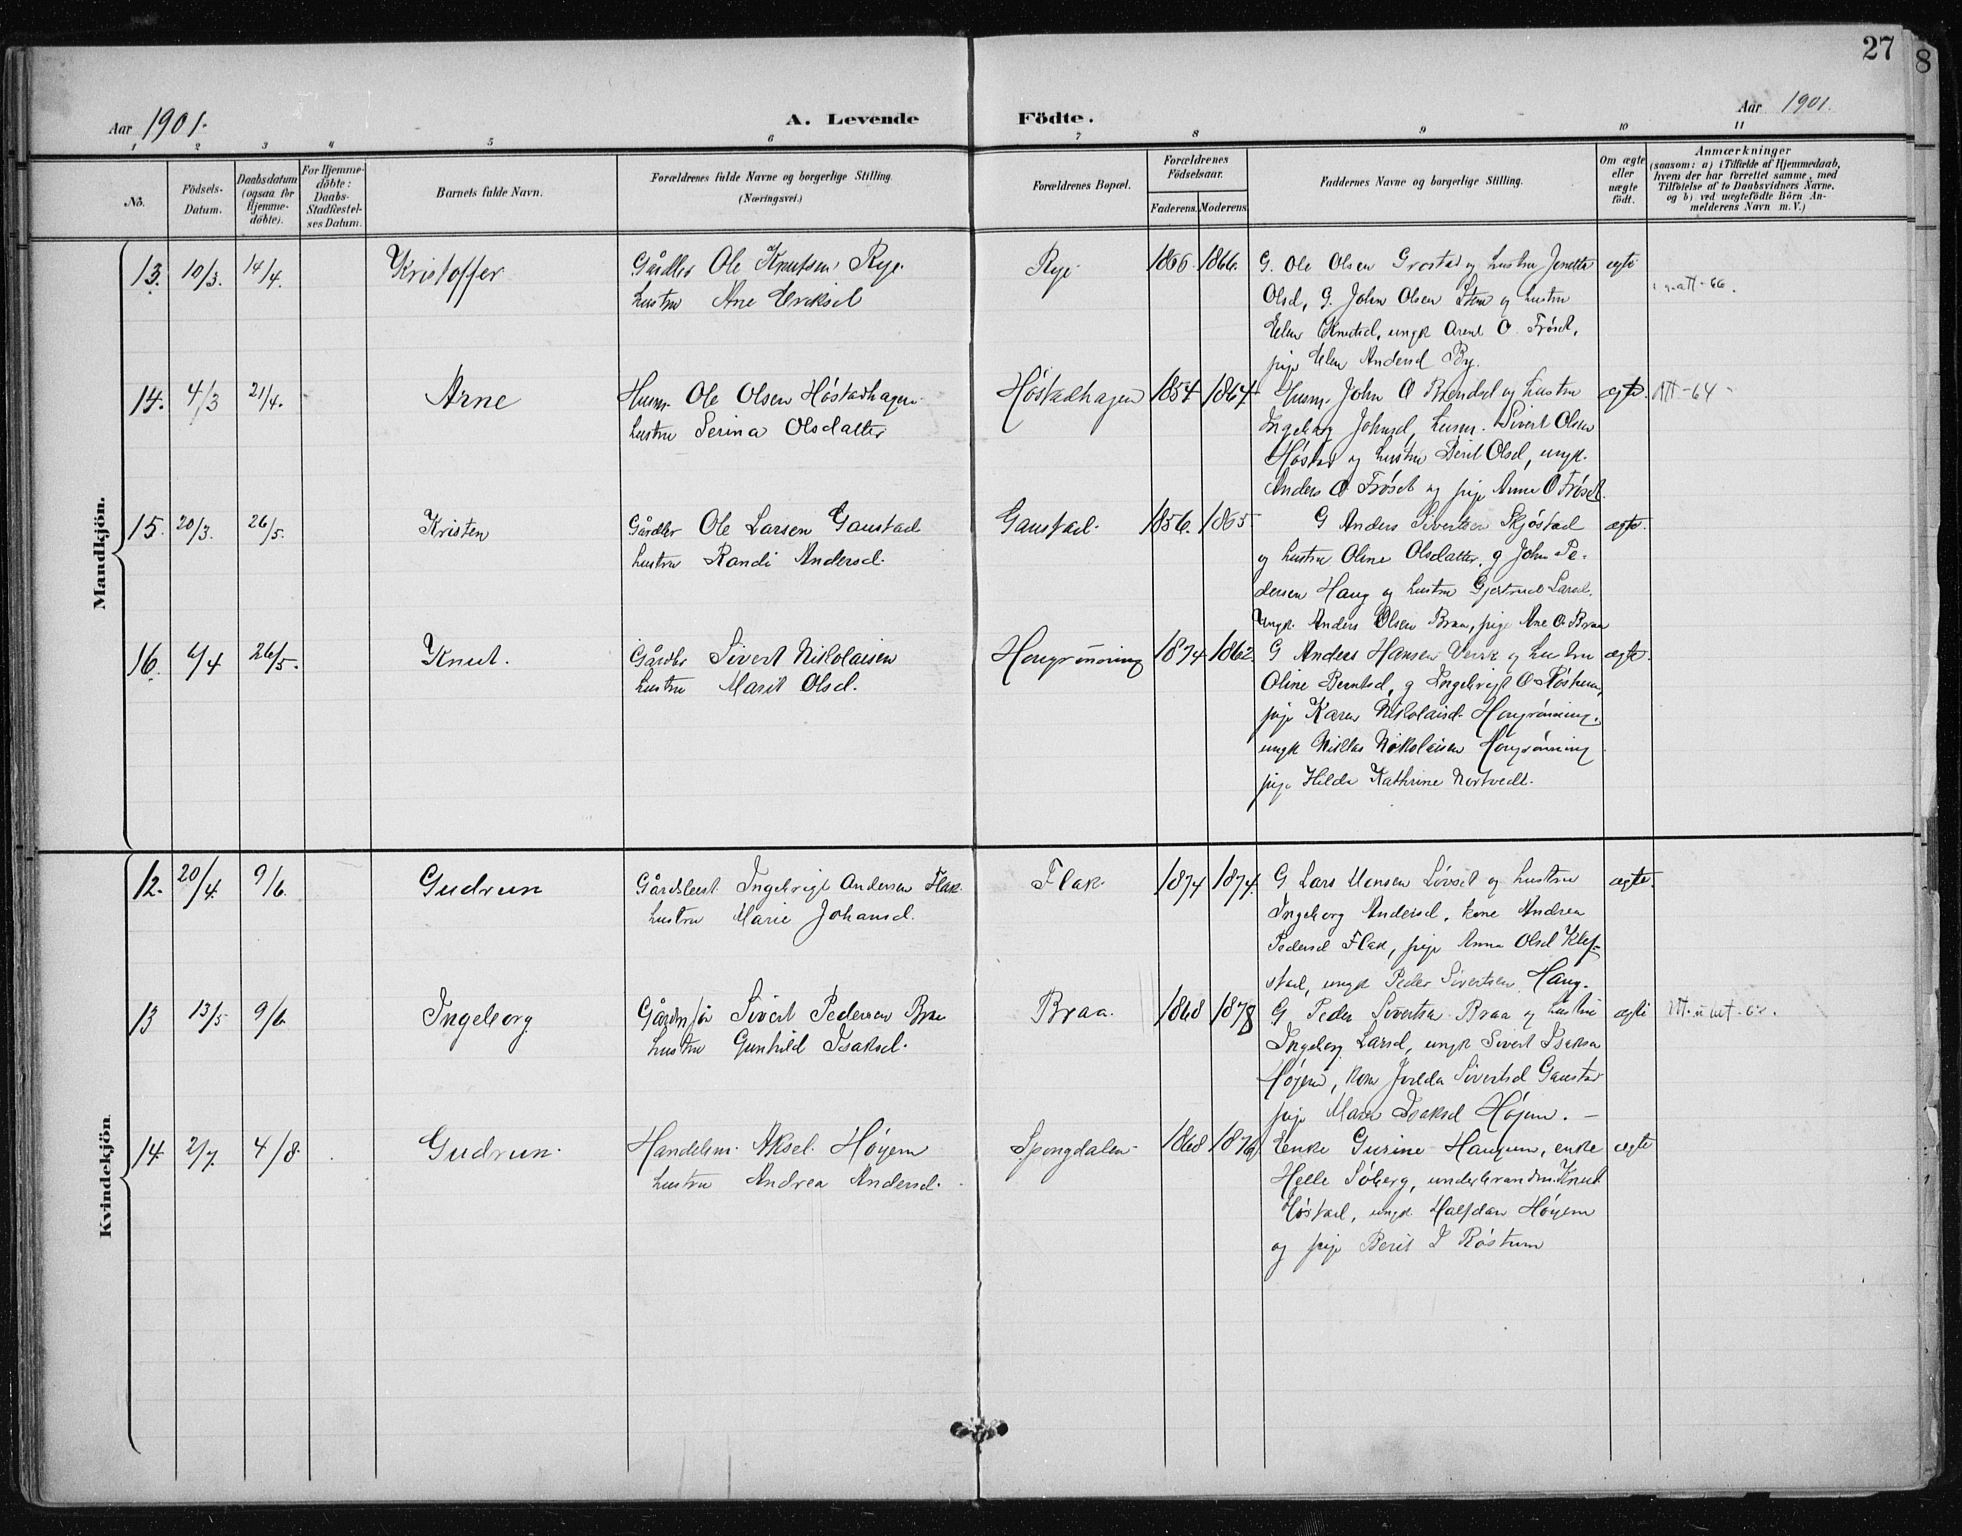 27
8
Aar 1901.
A. Levende Födte.
Aar 1901.
1 2 3 4 5 6 7 8 9 10 11
No.
Födsels-Datum.
Daabsdatum (ogsaa for Hjemme-döbte).
For Hjemme-döbte: Daabs-Stadfæstelses Datum.
Barnets fulde Navn.
Forældrenes fulde Navne og borgerlige Stilling.
(Næringsvei.)
Forældrenes Bopæl.
Forældrenes Födselsaar.
Faderens. Moderens.
Faddernes Navne og borgerlige Stilling.
Om ægte eller uægte födt.
Anmærkninger
(saasom: a) i Tilfælde af Hjemmedaab, hvem der har forrettet samme, med Tilföielse af to Daabsvidners Navne, og b) ved uægtefödte Börn Anmelderens Navn m. V.)
Mandkjön.
13. 10/3. 14/4. Kristoffer Gårdbr Ole Knutsen Rye. Rye 1866 1866. G. Ole Olsen Grostad og hustru Jonetta ægte
hustru Ane Eriksd Olsd, G. John Olsen Sten og hustru
Elen Knutsd, ungk Arent O. Frøset,
pige Elen Andersd By.
14. 4/3 21/4. Arne Husm. Ole Olsen Høstadhagen Høstadhagen 1854 1864. Husm. John O Brendsel og hustru ægte. Att-64
hustru Serina Olsdatter Ingeborg Johnsd, husm. Sivert Olsen
Høstad og hustru Berit Olsd, ungk.
Anders O Frøset og pige Anne O Frøset.
15. 20/3. 26/5. Kristen Gårdbr Ole Larsen Gaustad Gaustad. 1856. 1865 G Anders Sivertsen Skjøstad ægte.
hustru Randi Andersd. og hustru Oline Olsdatter, g John Pe-
dersen Haug og hustru Gjertrud Larsd.
Ungk. Anders Olsen Braa, pige Ane O. Braa
16. 6/4 26/5. Knut. Gårdbr Sivert Nikolaisen Hongrønning 1874 1862. G Anders Hansen og hustru ægte.
hustru Marit Olsd. Oline Berntsd, g Ingebrigt O Røstum,
pige Karen Nikolaisd. Hongrønning,
ungk Niklas Nikolaisen Hongrønning
pige Hilda Kathrine Nortvedt.
Kvindekjön.
12. 20/4. 9/6. Gudrun Gårdbest. Ingebrigt Andersen Flak Flak. 1874 1874. G Lars Monsen Løvset og hustru ægte.
hustru Marie Johansd. Ingeborg Andersd, kone Andrea
Pedersd Flak, pige Anna Olsd Klef-
stad, ungk Peder Sivertsen Haug.
13 13/5 9/6. Ingeborg Sivert Pedersen Braa Braa. 1868 1878 G. Peder Sivertsen Braa og hustru ægte
hustru Gunhild Isaksd. Ingeborg Larsd, ungk Sivert Isaksen
Høyem, kone Sivertsd Gaustad
pige Maren Isaksd Høyem. —
14. 2/7. 4/8. Gudrun. Handelsm. Aksel Høyem Spongdalen 1868 1876 Enke Gurine Haugum, enke ægte
hustru Andrea Andersd. Helle Søberg, underbrandm. Knut
Høstad, ungk Halfdan Høyem
og pige Berit I Røstum